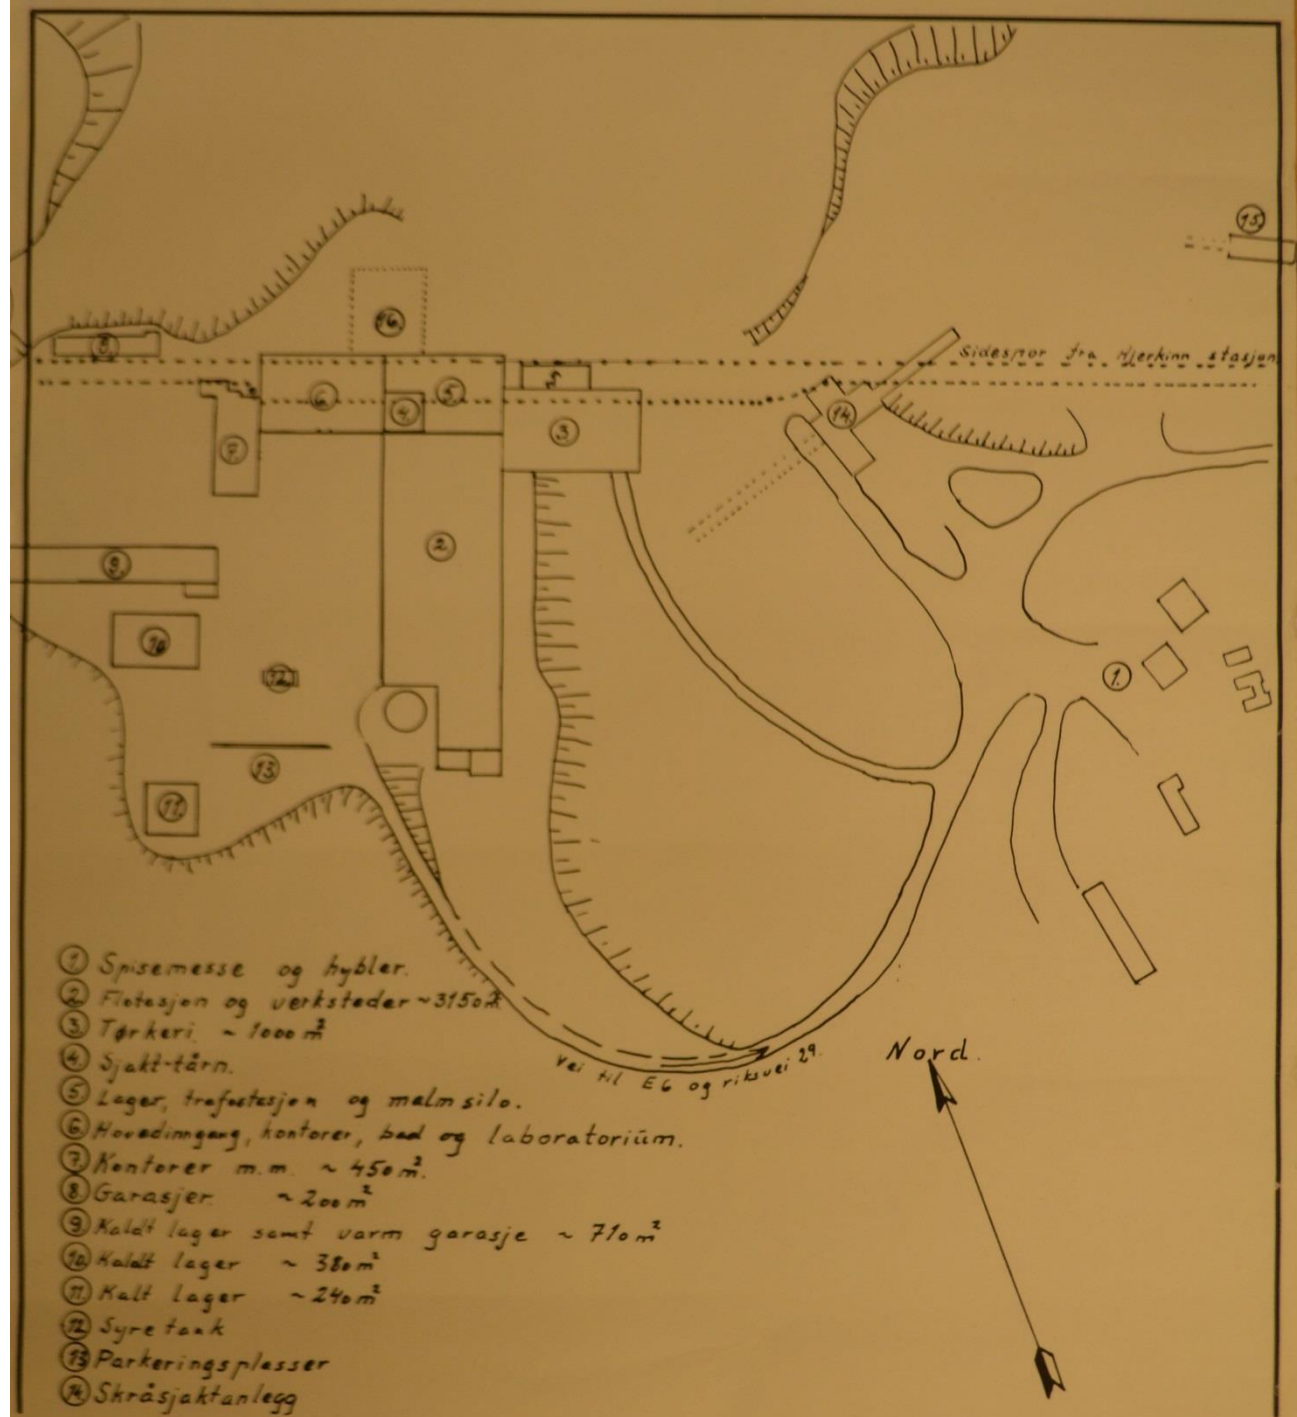 15.
16.
8
Sidespor fra Hjerkinn stasjon
6
5
4
14.
3
7.
2
9.
10
12.
1.
13
11.
① Spisemesse og hybler.
② Flotasjon og verksteder ~3150 m²
③ Tørkeri. ~ 1000 m²
④ Sjakt-tårn.
Vei til E6 og riksvei 29.
Nord.
⑤ Lager, trafostasjon og malmsilo.
⑥ Hovedinngang, kontorer, bad og laboratorium.
⑦ Kontorer m.m. ~ 450 m².
⑧ Garasjer. ~ 200 m²
⑨ Kaldt lager samt varm garasje ~ 710 m²
⑩ Kaldt lager ~ 380 m²
⑪ Kalt lager ~ 240 m²
⑫ Syretank
⑬ Parkeringsplasser
⑭ Skråsjaktanlegg